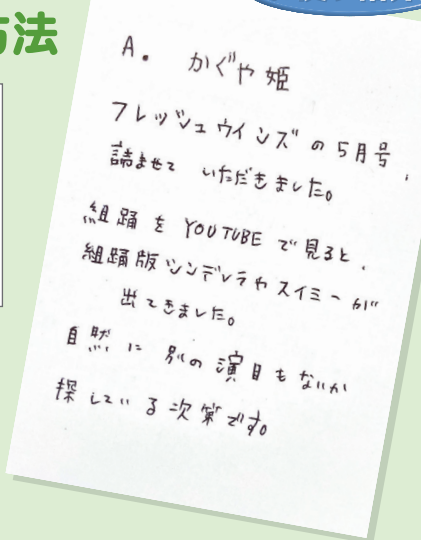 方法
A. かぐや姫
フレッシュウインズの5月号、
読ませて いただきました。
組踊を YOUTUBE で見ると、
組踊版シンデレラやスイミーが
出てきました。
自然に 別の演目もないか
探している次第です。